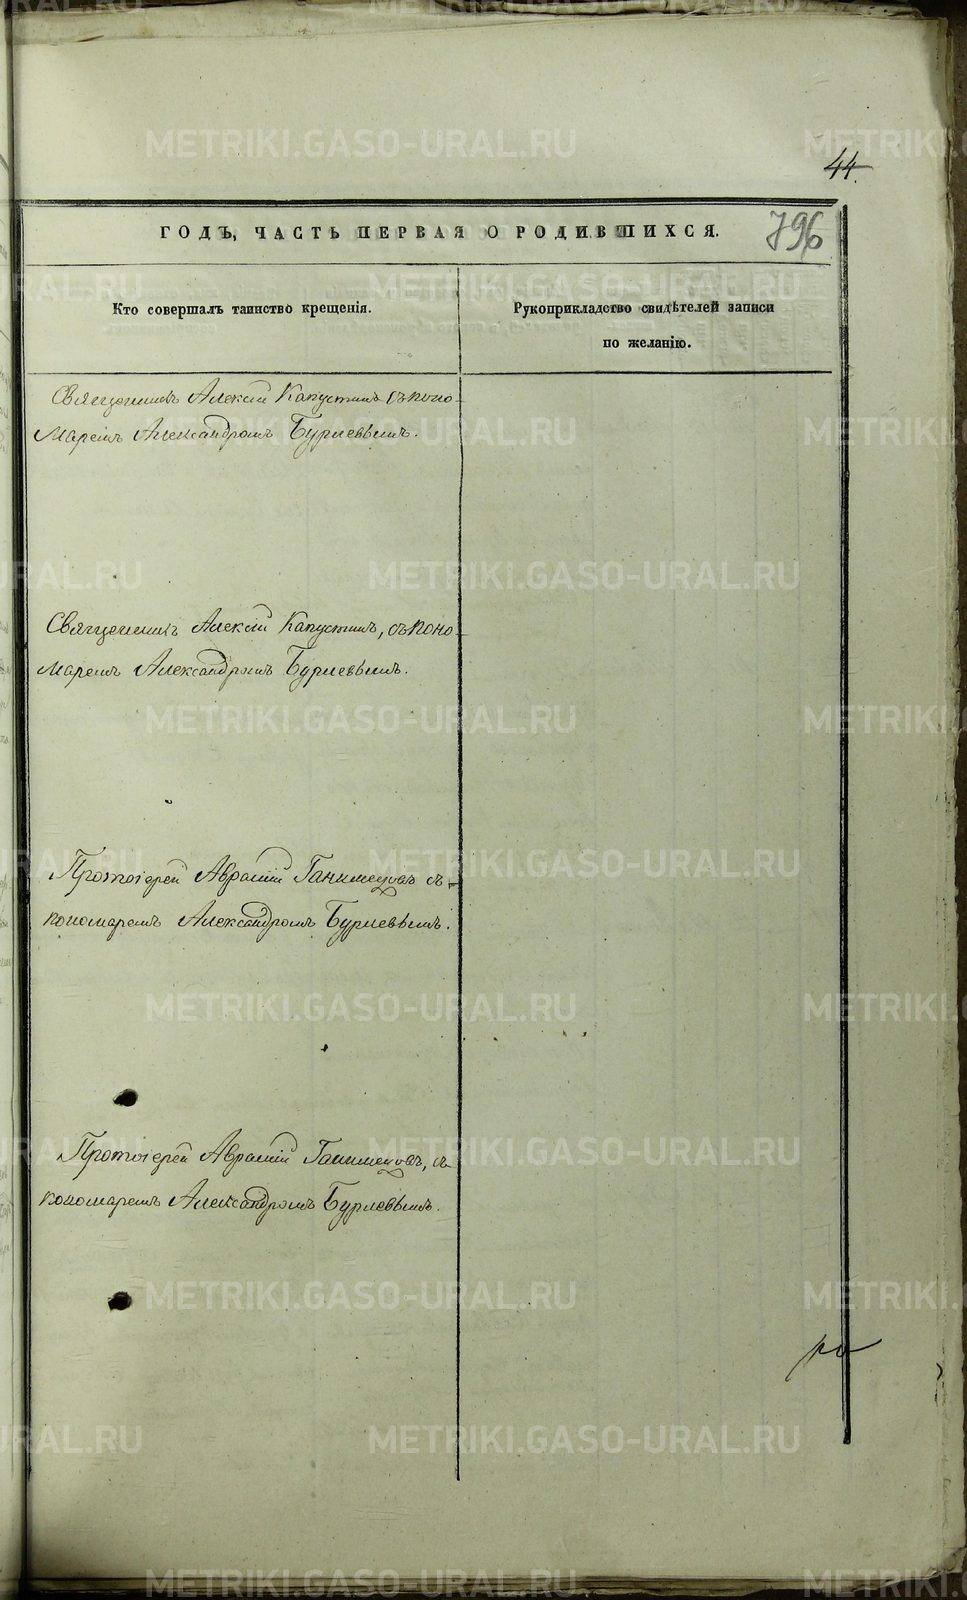 44.
ГОДЪ, ЧАСТЬ ПЕРВАЯ О РОДИВШИХСЯ.
796
Кто совершалъ таинство крещенія.
Рукоприкладство свидѣтелей записи
по желанію.
Священникъ Алексій Капустинъ съ поно-
маремъ Александромъ Бурневымъ.
Священникъ Алексій Капустинъ, съ поно-
маремъ Александромъ Бурневымъ.
Протоіерей Аврамій съ
пономаремъ Александромъ Бурневымъ.
Протоіерей Аврамій съ
пономаремъ Александромъ Бурневымъ.
METRIKI.GASO-URAL.RU